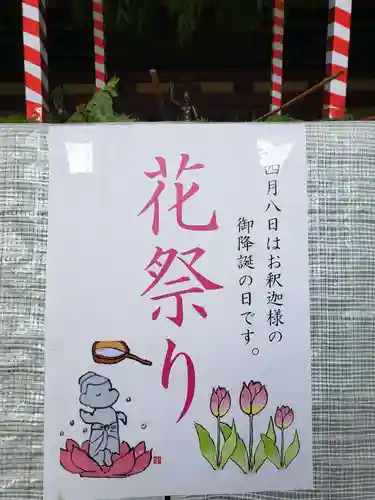 四月八日はお釈迦様の
御降誕の日です。
花祭り